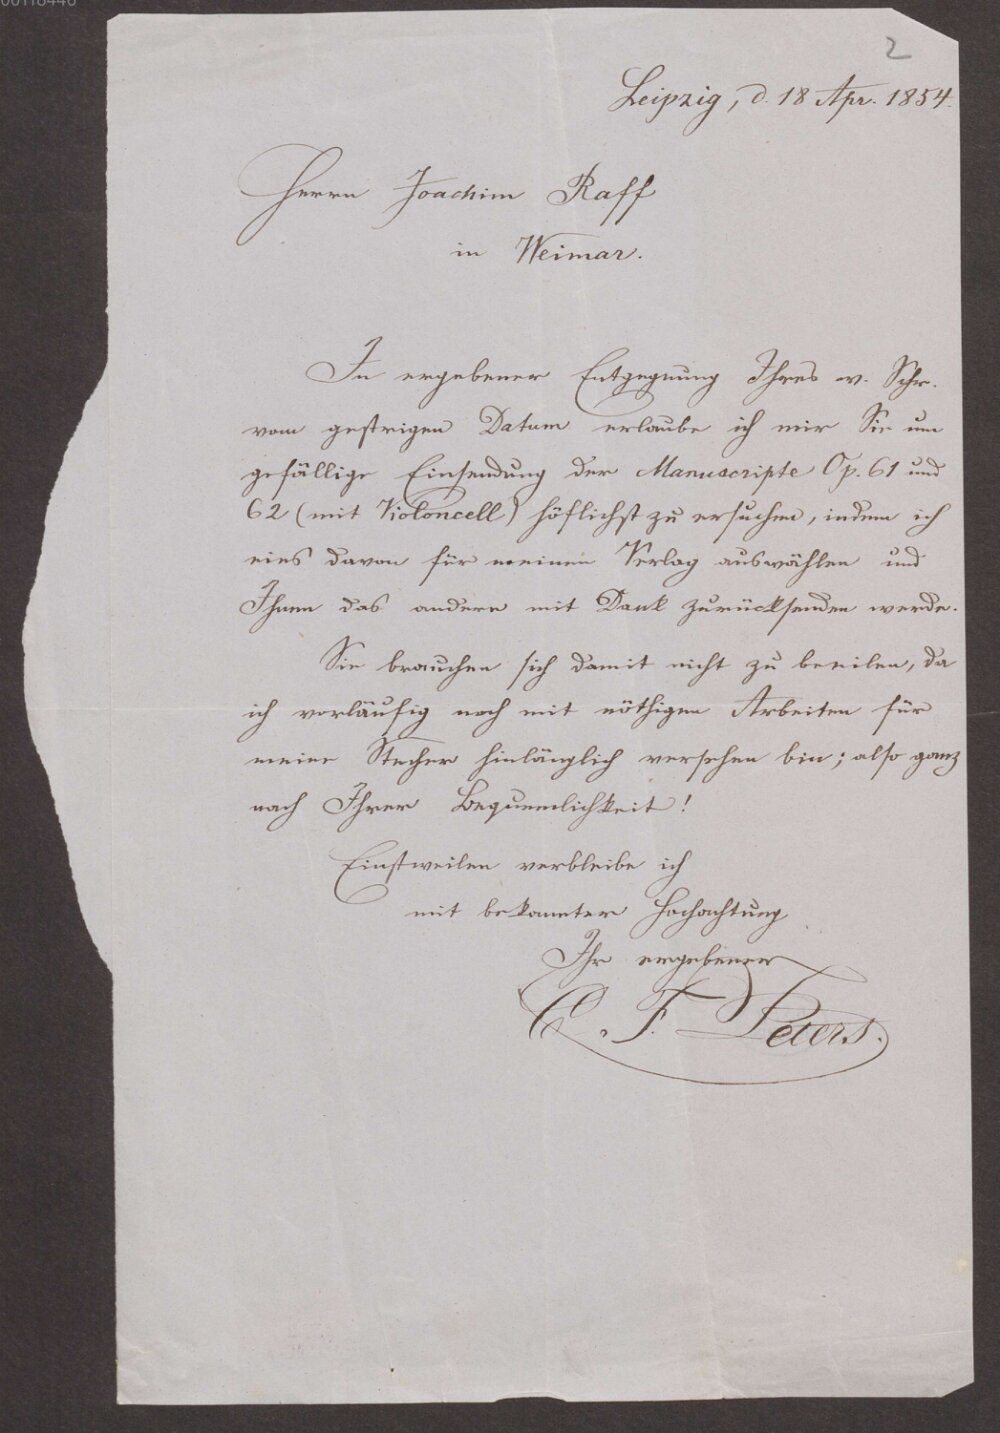 00118446
2
Leipzig, d. 18 Apr. 1854.
Herrn Joachim Raff
in Weimar.
In ergebener Entgegnung Ihres w. Schr.
vom gestrigen Datum erlaube ich mir Sie um
gefällige Einsendung der Manuscripte Op. 61 und
62 (mit Violoncell) höflichst zu ersuchen, indem ich
eins davon für meinen Verlag auswählen und
Ihnen das andere mit Dank zurücksenden werde.
Sie brauchen sich damit nicht zu beeilen, da
ich vorläufig noch mit nöthigen Arbeiten für
meine Stecher hinlänglich versehen bin; also ganz
nach Ihrer Bequemlichkeit!
Einstweilen verbleibe ich
mit bekannter Hochachtung
Ihr ergebener
C. F. Peters.